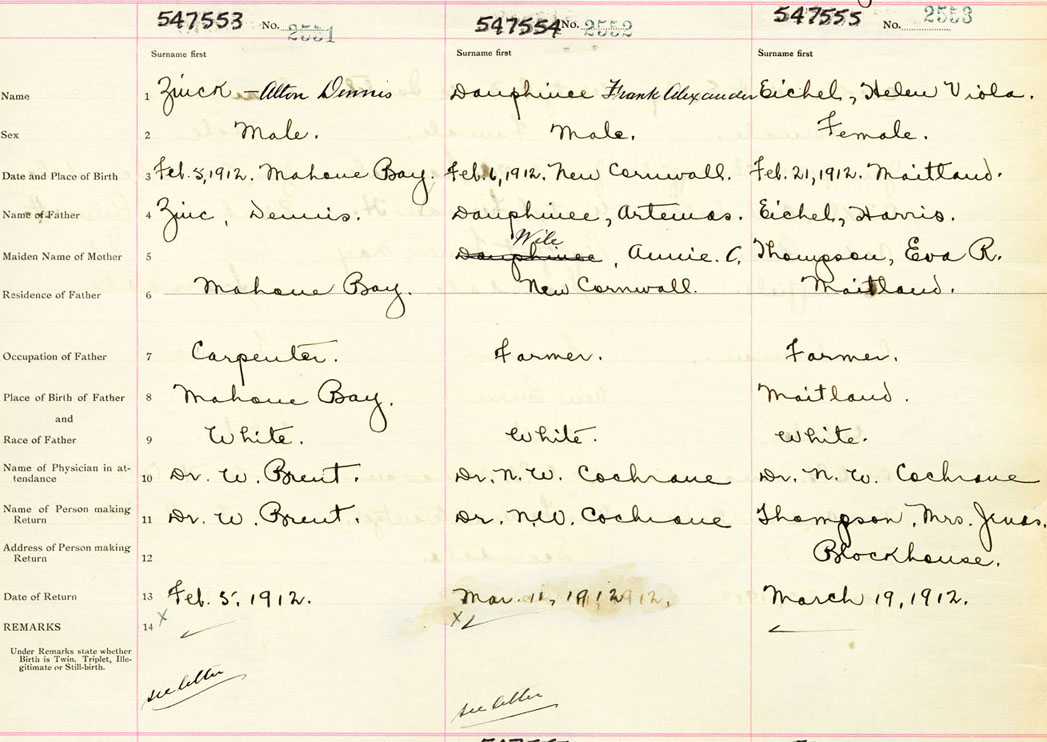 547553 No. 2551 547554 No. 2552 547555 No. 2553
Surname first Surname first Surname first
Name 1 Zinck - Alton Dennis Dauphinee Frank Alexander Eichel, Helen Viola.
Sex 2 Male. Male. Female.
Date and Place of Birth 3 Feb. 5, 1912. Mahone Bay. Feb. 6, 1912. New Cornwall. Feb. 21, 1912. Maitland.
Name of Father 4 Zinc, Dennis. Dauphinee, Artemas. Eichel, Harris.
Wile
Maiden Name of Mother 5 Dauphinee, Annie. C, Thompson, Eva R.
Residence of Father 6 Mahone Bay. New Cornwall. Maitland.
Occupation of Father 7 Carpenter. Farmer. Farmer.
Place of Birth of Father 8 Mahone Bay. Maitland.
and
Race of Father 9 White. White. White.
Name of Physician in at-
tendance 10 Dr. W. Brent. Dr. N. W. Cochrane Dr. N. W. Cochrane
Name of Person making
Return 11 Dr. W. Brent. Dr. N.W. Cochrane Thompson, Mrs.
Address of Person making
Return 12 Blockhouse.
Date of Return 13 Feb. 5, 1912. Mar. 11, 1912 1912. March 19, 1912.
REMARKS 14 x x
Under Remarks state whether
Birth is Twin, Triplet, Ille-
gitimate or Still-birth.
see letter
see letter